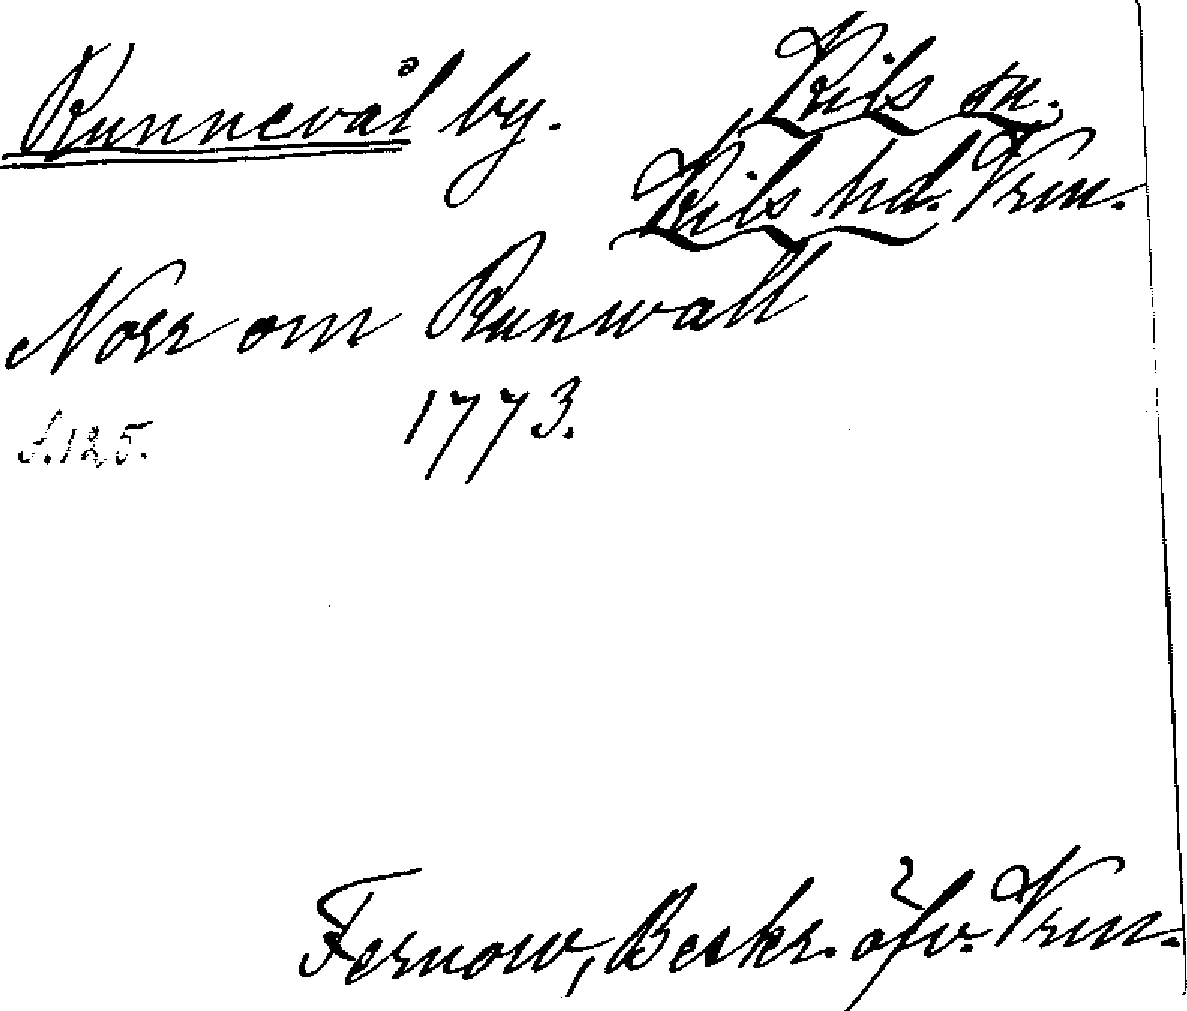 Runnevål by.
Kils sn.
Kils hd. Vrm.
Norr om Runwall
1773.
S. 125.
Fernow, Beskr. öfv. Vrm.